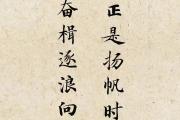 正是扬帆时
奋楫逐浪向